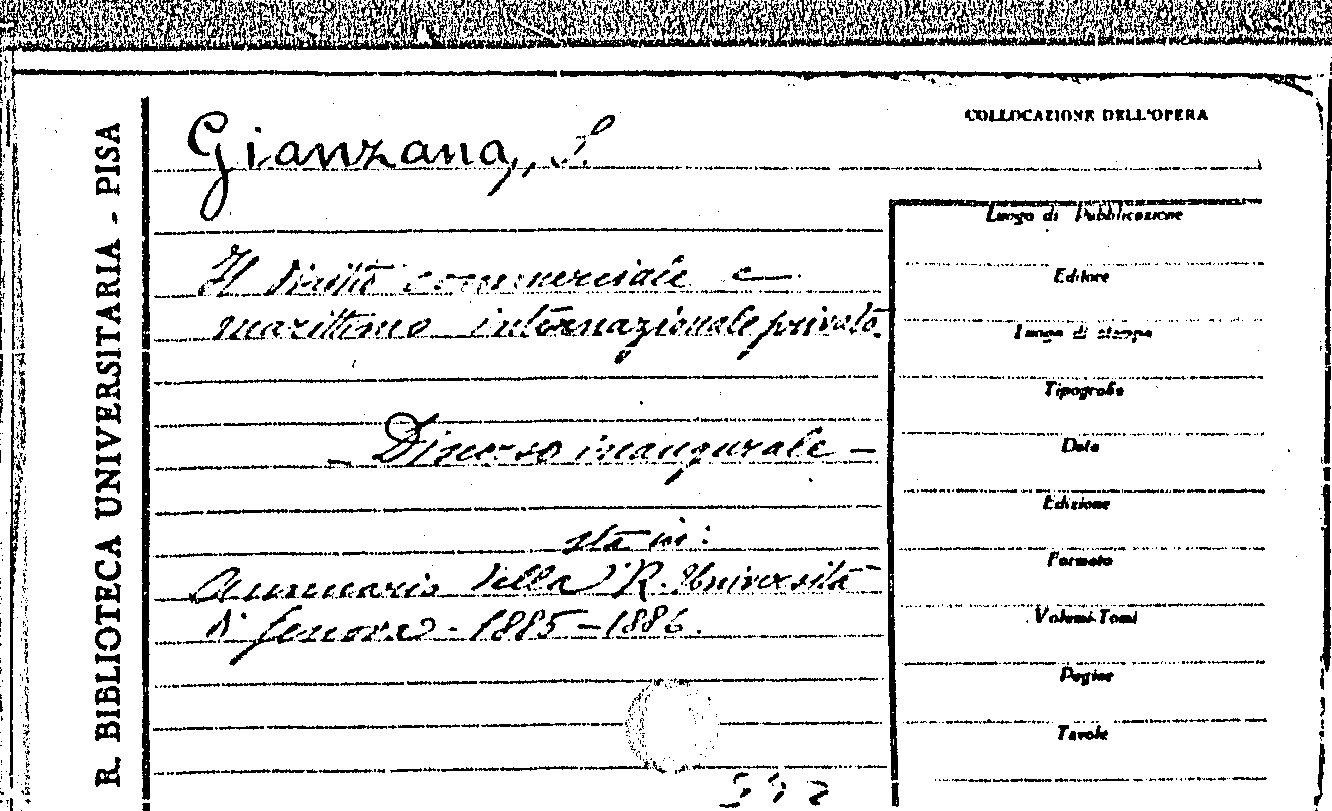 R. BIBLIOTECA UNIVERSITARIA - PISA
Gianzana, S.
COLLOCAZIONE DELL'OPERA
Il diritto commerciale e
marittimo internazionale privato.
- Discorso inaugurale -
sta in:
Annuario della R. Università
di Genova - 1885-1886.
Luogo di Pubblicazione
Editore
Luogo di stampa
Tipografia
Data
Edizione
Formato
Volumi-Tomi
Pagine
Tavole